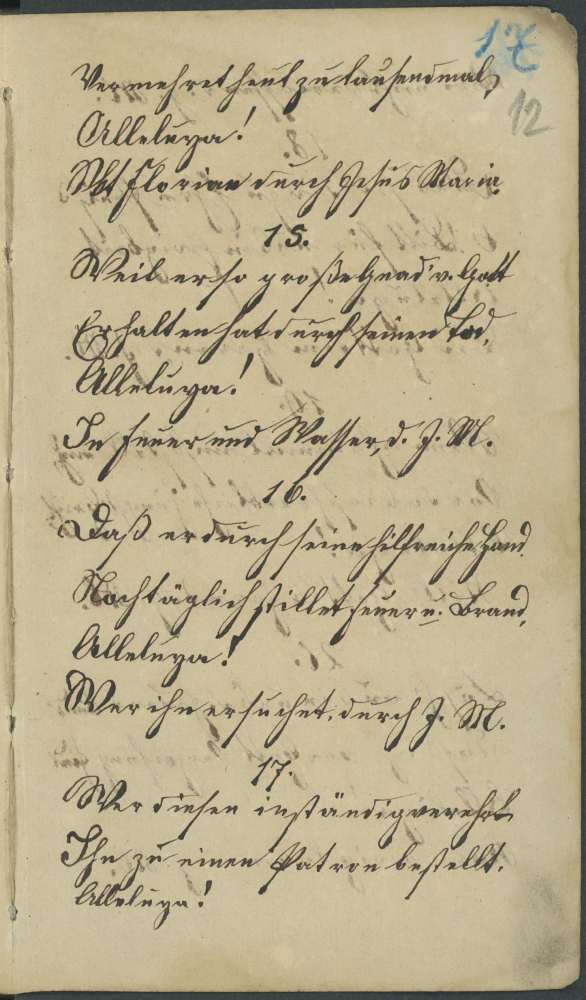 17
12
Vermehret heut zu tausendmal,
Alleluya!
St Florian durch Jesus Maria
15.
Weil er so große Gnad' v. Gott
Erhalten hat durch seinen Tod,
Alleluya!
In Feuer und Wasser, d. J. M.
16.
Daß er durch seine hilfreiche Hand
Noch täglich stillet Feuer u. Brand,
Alleluya!
Wer ihn ersuchet, durch J. M.
17.
Wer diesen inständig verehrt
Ihn zu einen Patron bestellt.
Alleluya!